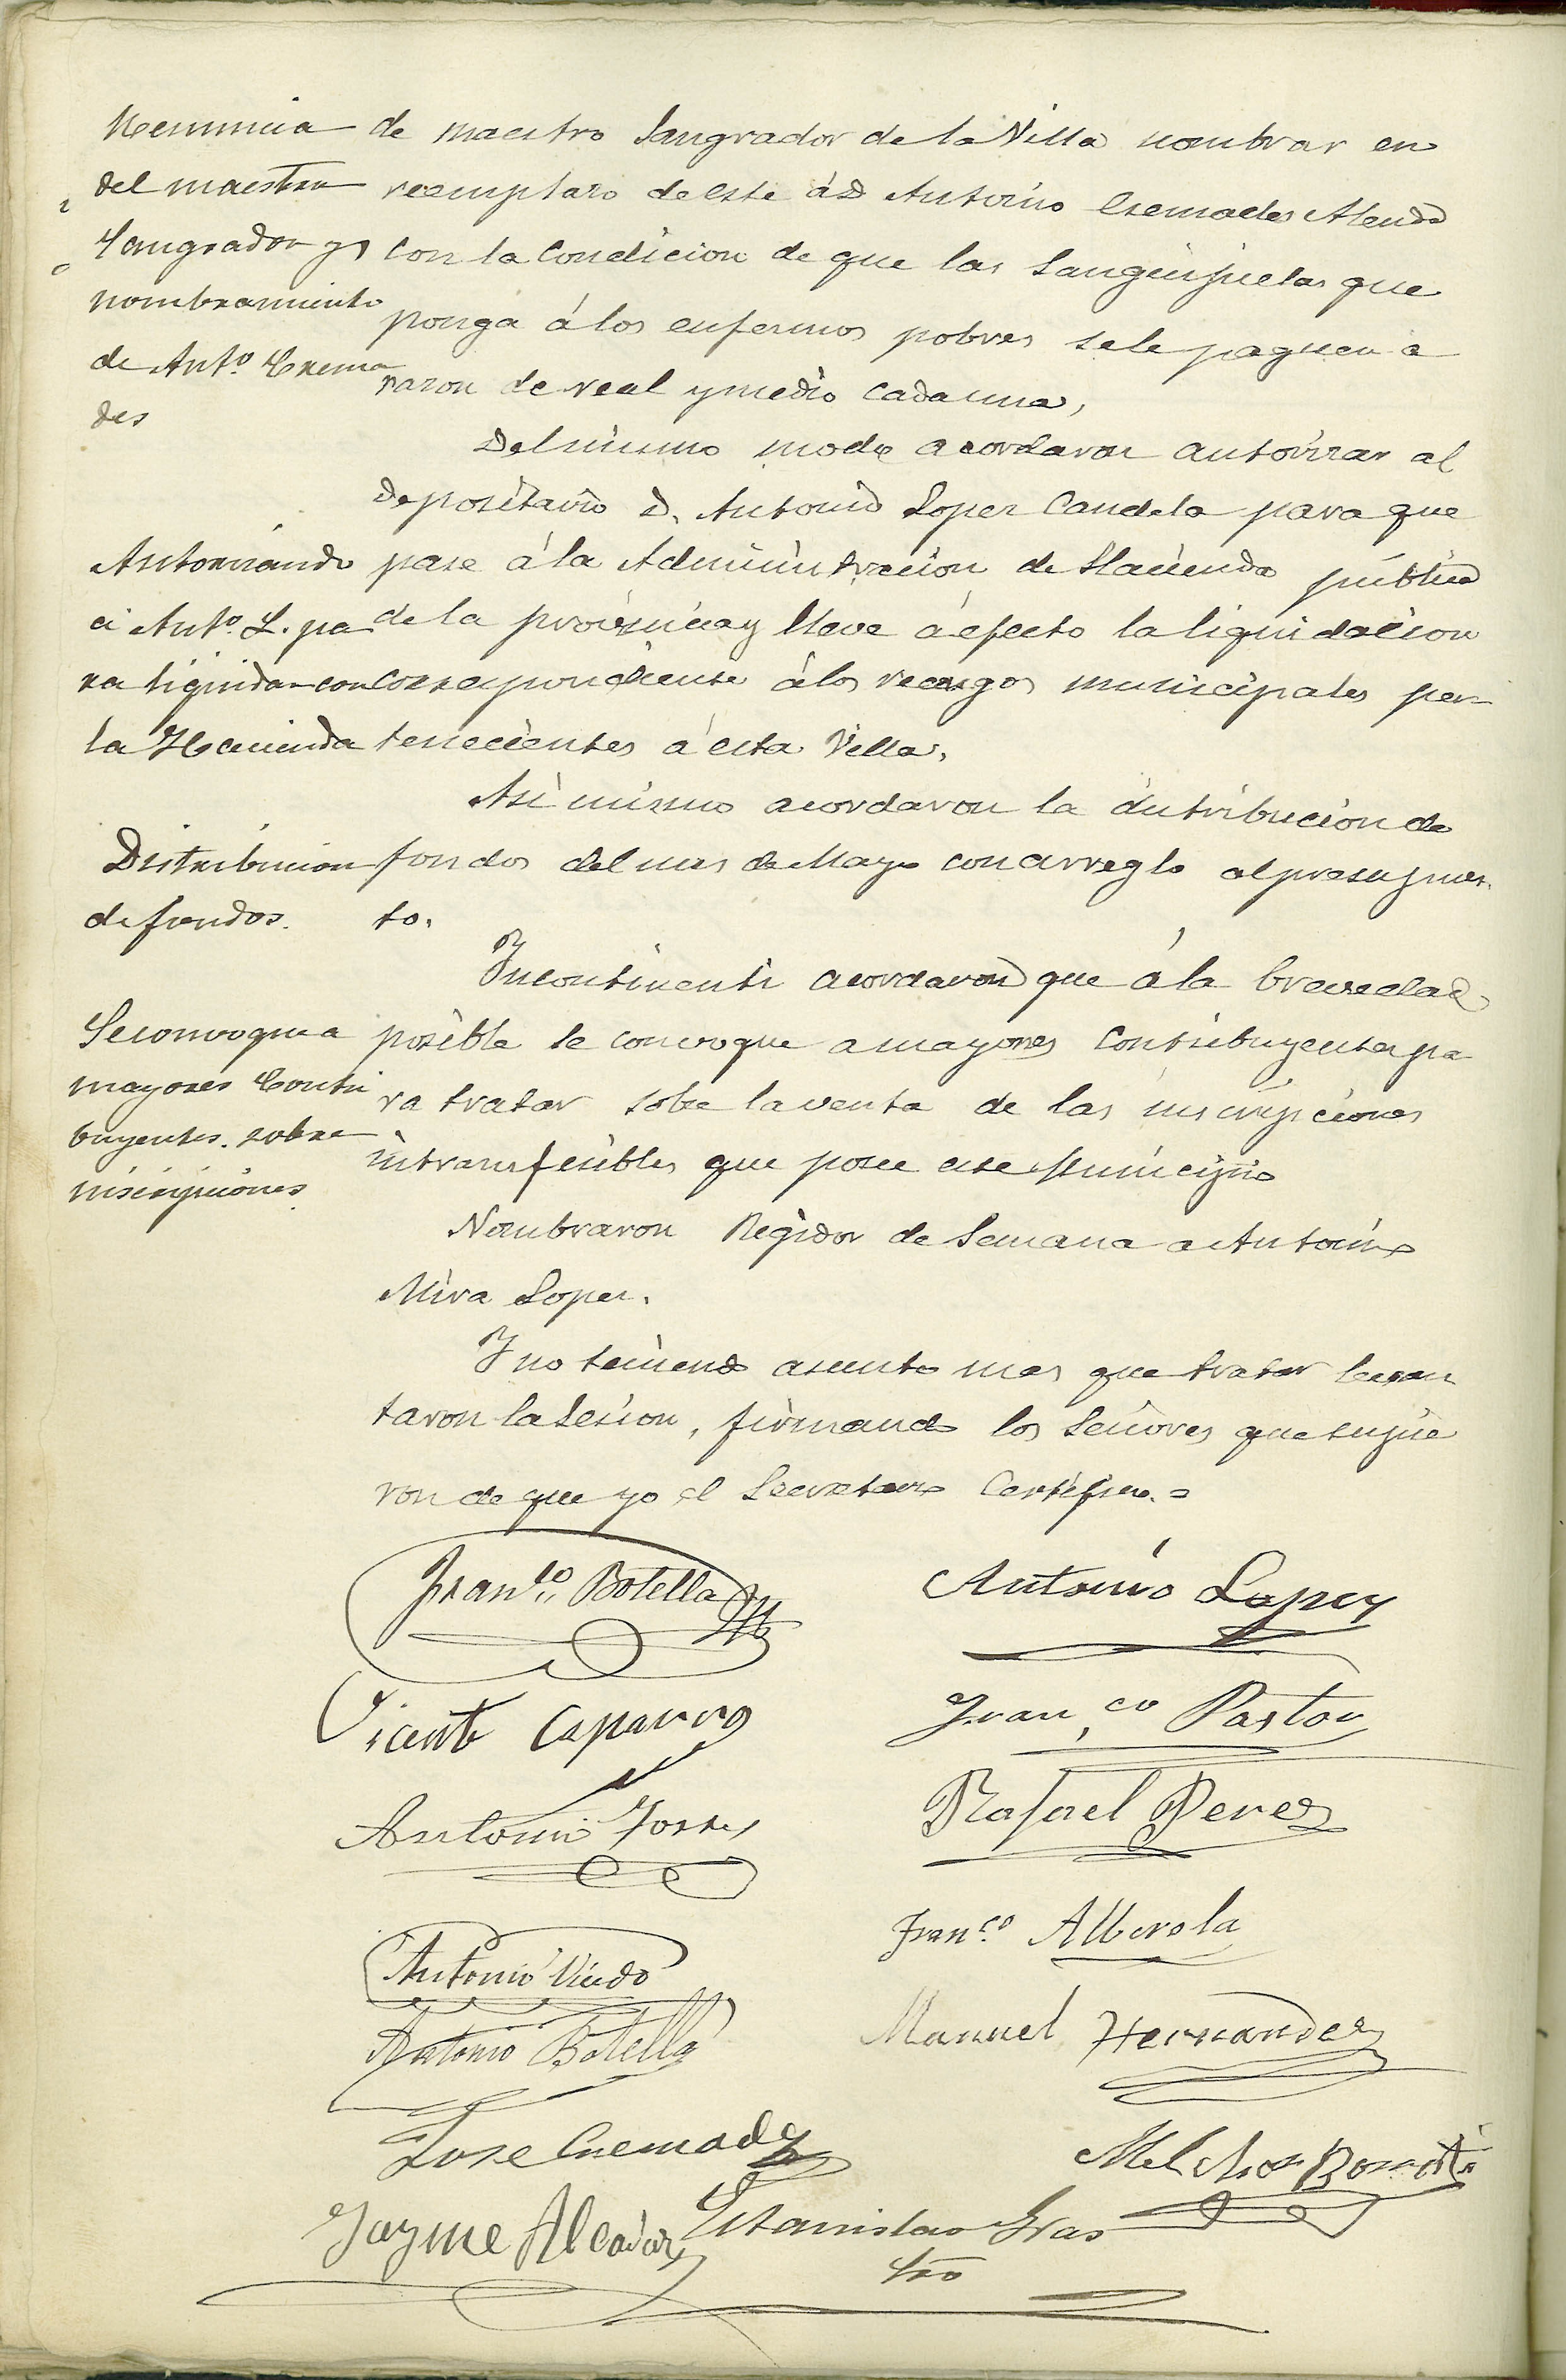 Renuncia
del maestro
Sangrador y
nombramiento
de Antº. Crema
des
de maestro Sangrador de la Villa nombrar en
reemplazo de este á D Antonio Cremades Alendo
con la condicion de que las Sanguijuelas que
ponga á los enfermos pobres se le paguen a
razon de real y medio cada una,
Del mismo modo acordaron autorizar al
Depositario D. Antonio Loper Candela para que
Autorizando
á Antº. L. pa
ra liquidar con
la Hacienda
pase á la Administracion de Hacienda pública
de la provincia y lleve á efecto la liquidacion
correspondiente á los recargos municipales per
tenecientes á esta Villa,
Asi mismo acordaron la distribucion de
Distribucion
de fondos.
fondos del mes de Mayo con arreglo al presupues
to.
Incontinenti acordaron que á la brevedad
Se convoque a
mayores Contri
buyentes. sobre
inscripciones
posible se convoque a mayores Contribuyentes pa
ra tratar sobre la venta de las inscripciones
intransferibles que posee este Municipio
Nombraron Regidor de Semana a Antonio
Mira Loper.
Y no teniendo asunto mas que tratar levan
taron la Sesion, firmando los Señores que supie
ron de que yo el Secretario Certifico.=
Franco. Botella
Antonio Lopez
Vicente Caparros
Franco Pastor
Antonio Torres
Rafael Perez
Franco. Alberola
Antonio
Manuel Hernandez
Antonio Botella
Jose Cremades
Melchor
Jayme Alcaraz
Estanislao Gras
Srio